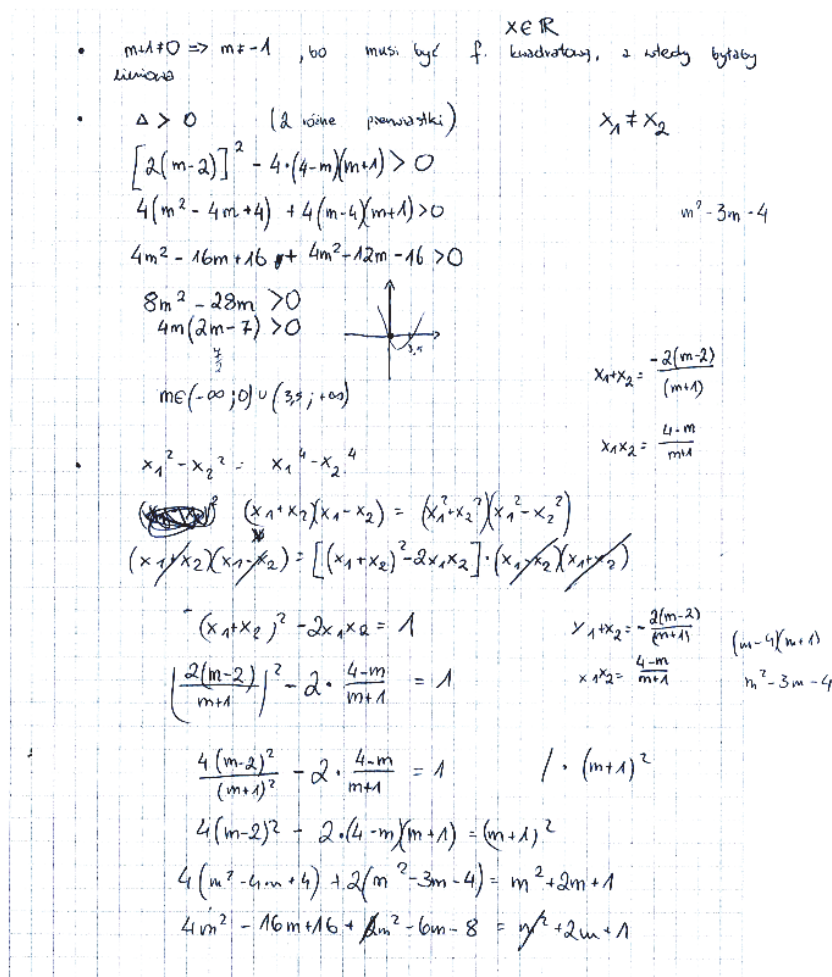 x∈ℝ
• m+1≠0 => m≠-1 , bo musi być f. kwadratową, a wtedy byłaby
liniowa
• Δ > 0 (2 różne pierwiastki) x₁ ≠ x₂
[2(m-2)]² - 4·(4-m)(m+1) > 0
4(m² - 4m+4) + 4(m-4)(m+1)>0 m² - 3m - 4
4m² - 16m+16 + 4m²-12m-16 >0
8m² - 28m >0
4m(2m-7) >0
7/2 3,5
x₁+x₂ = -2(m-2)/(m+1)
m∈(-∞;0) ∪ (3,5 ; +∞)
x₁x₂ = 4-m/m+1
• x₁² - x₂² = x₁⁴ - x₂⁴
(x₁+x₂)(x₁-x₂) = (x₁²+x₂²)(x₁²-x₂²)
(x₁+x₂)(x₁-x₂) = [(x₁+x₂)²-2x₁x₂]·(x₁-x₂)(x₁+x₂)
(x₁+x₂)² - 2x₁x₂ = 1 x₁+x₂ = -2(m-2)/(m+1) (m-4)(m+1)
(2(m-2)/m+1)² - 2· 4-m/m+1 = 1 x₁x₂ = 4-m/m+1 m² - 3m - 4
4(m-2)²/(m+1)² - 2· 4-m/m+1 = 1 /·(m+1)²
4(m-2)² - 2·(4-m)(m+1) = (m+1)²
4(m²-4m+4) + 2(m²-3m-4) = m²+2m+1
4m² - 16m+16 + 2m² - 6m - 8 = m² + 2m + 1